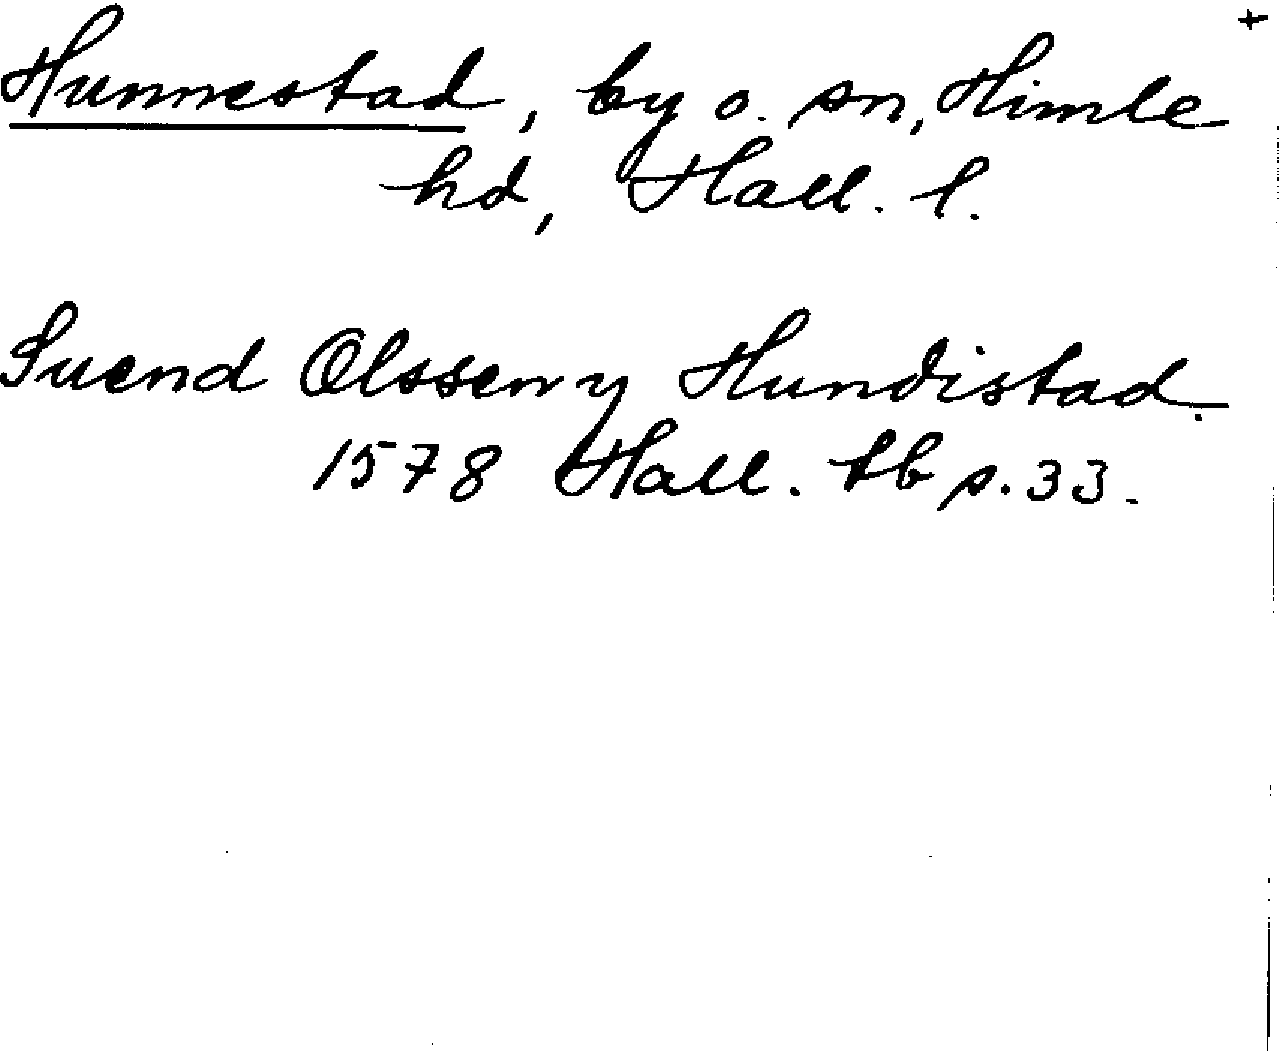 +
Hunnestad, by o. sn, Himle
hd, Hall. l.
Suend Olssen y Hundistad.
1578 Hall. tb s. 33.